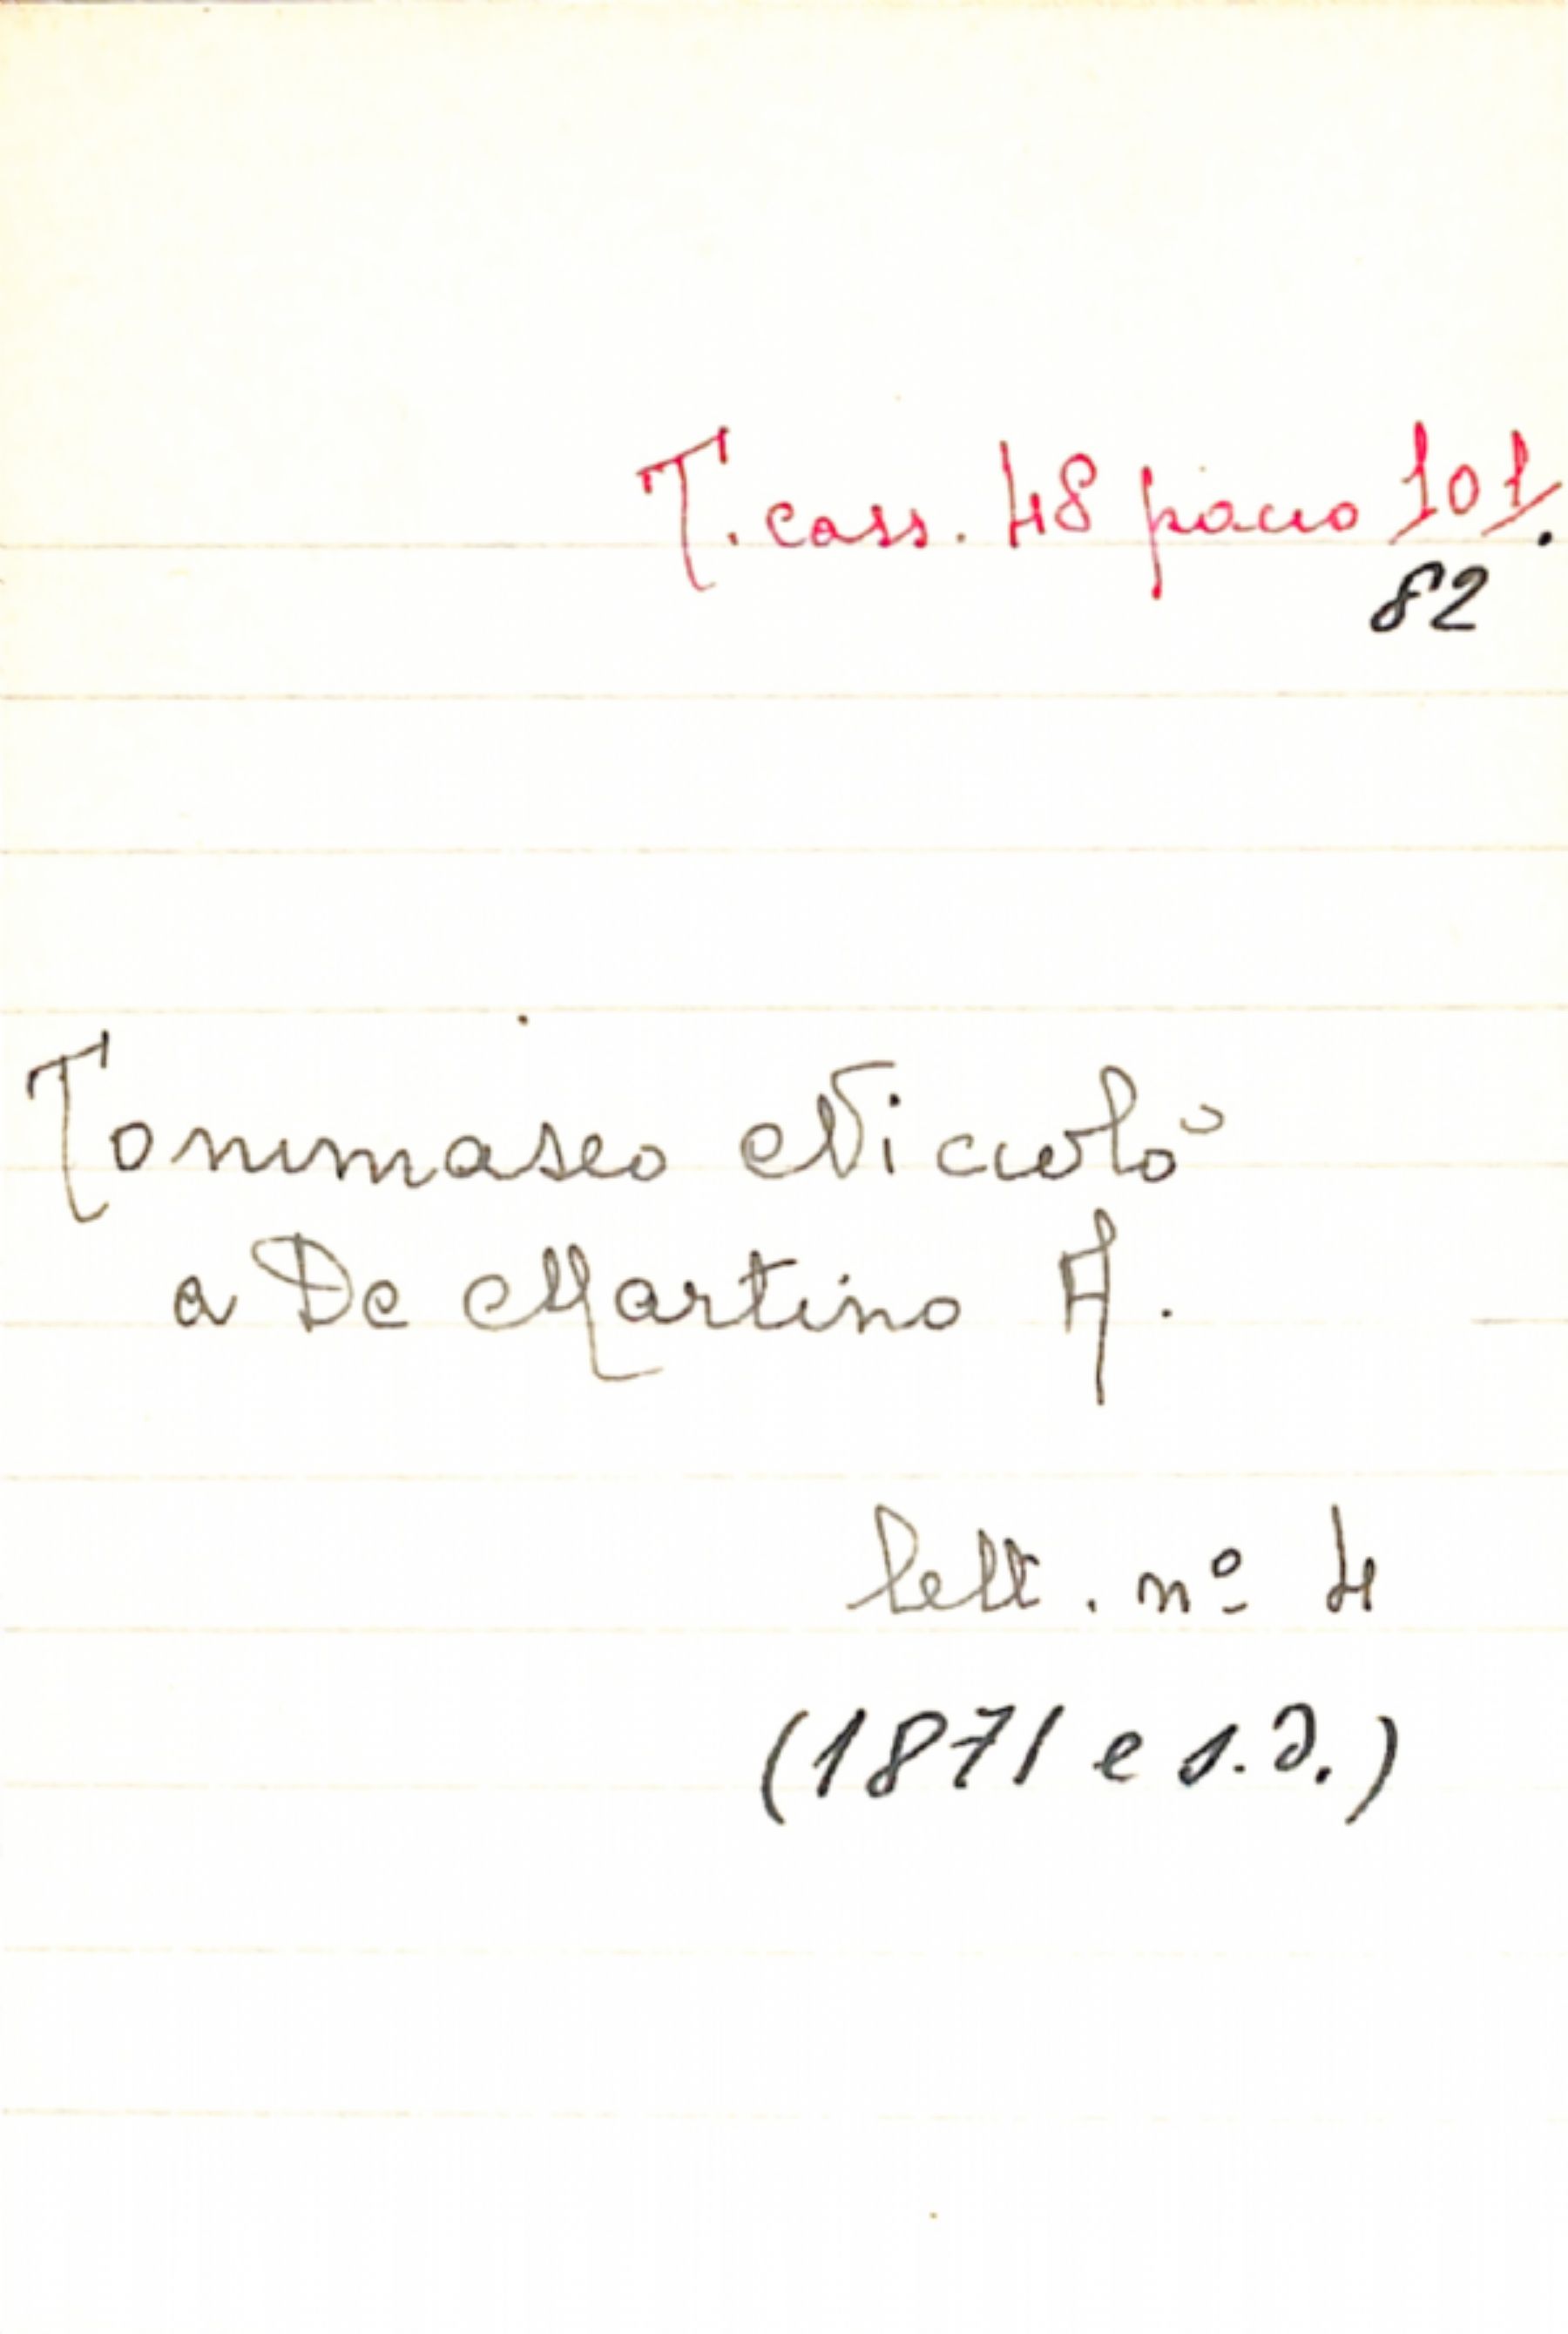 T. cass. 48 pacco 101.
82
Tommaseo Niccolò
a De Martino A.
lett. nº 4
(1871 e s.d.)